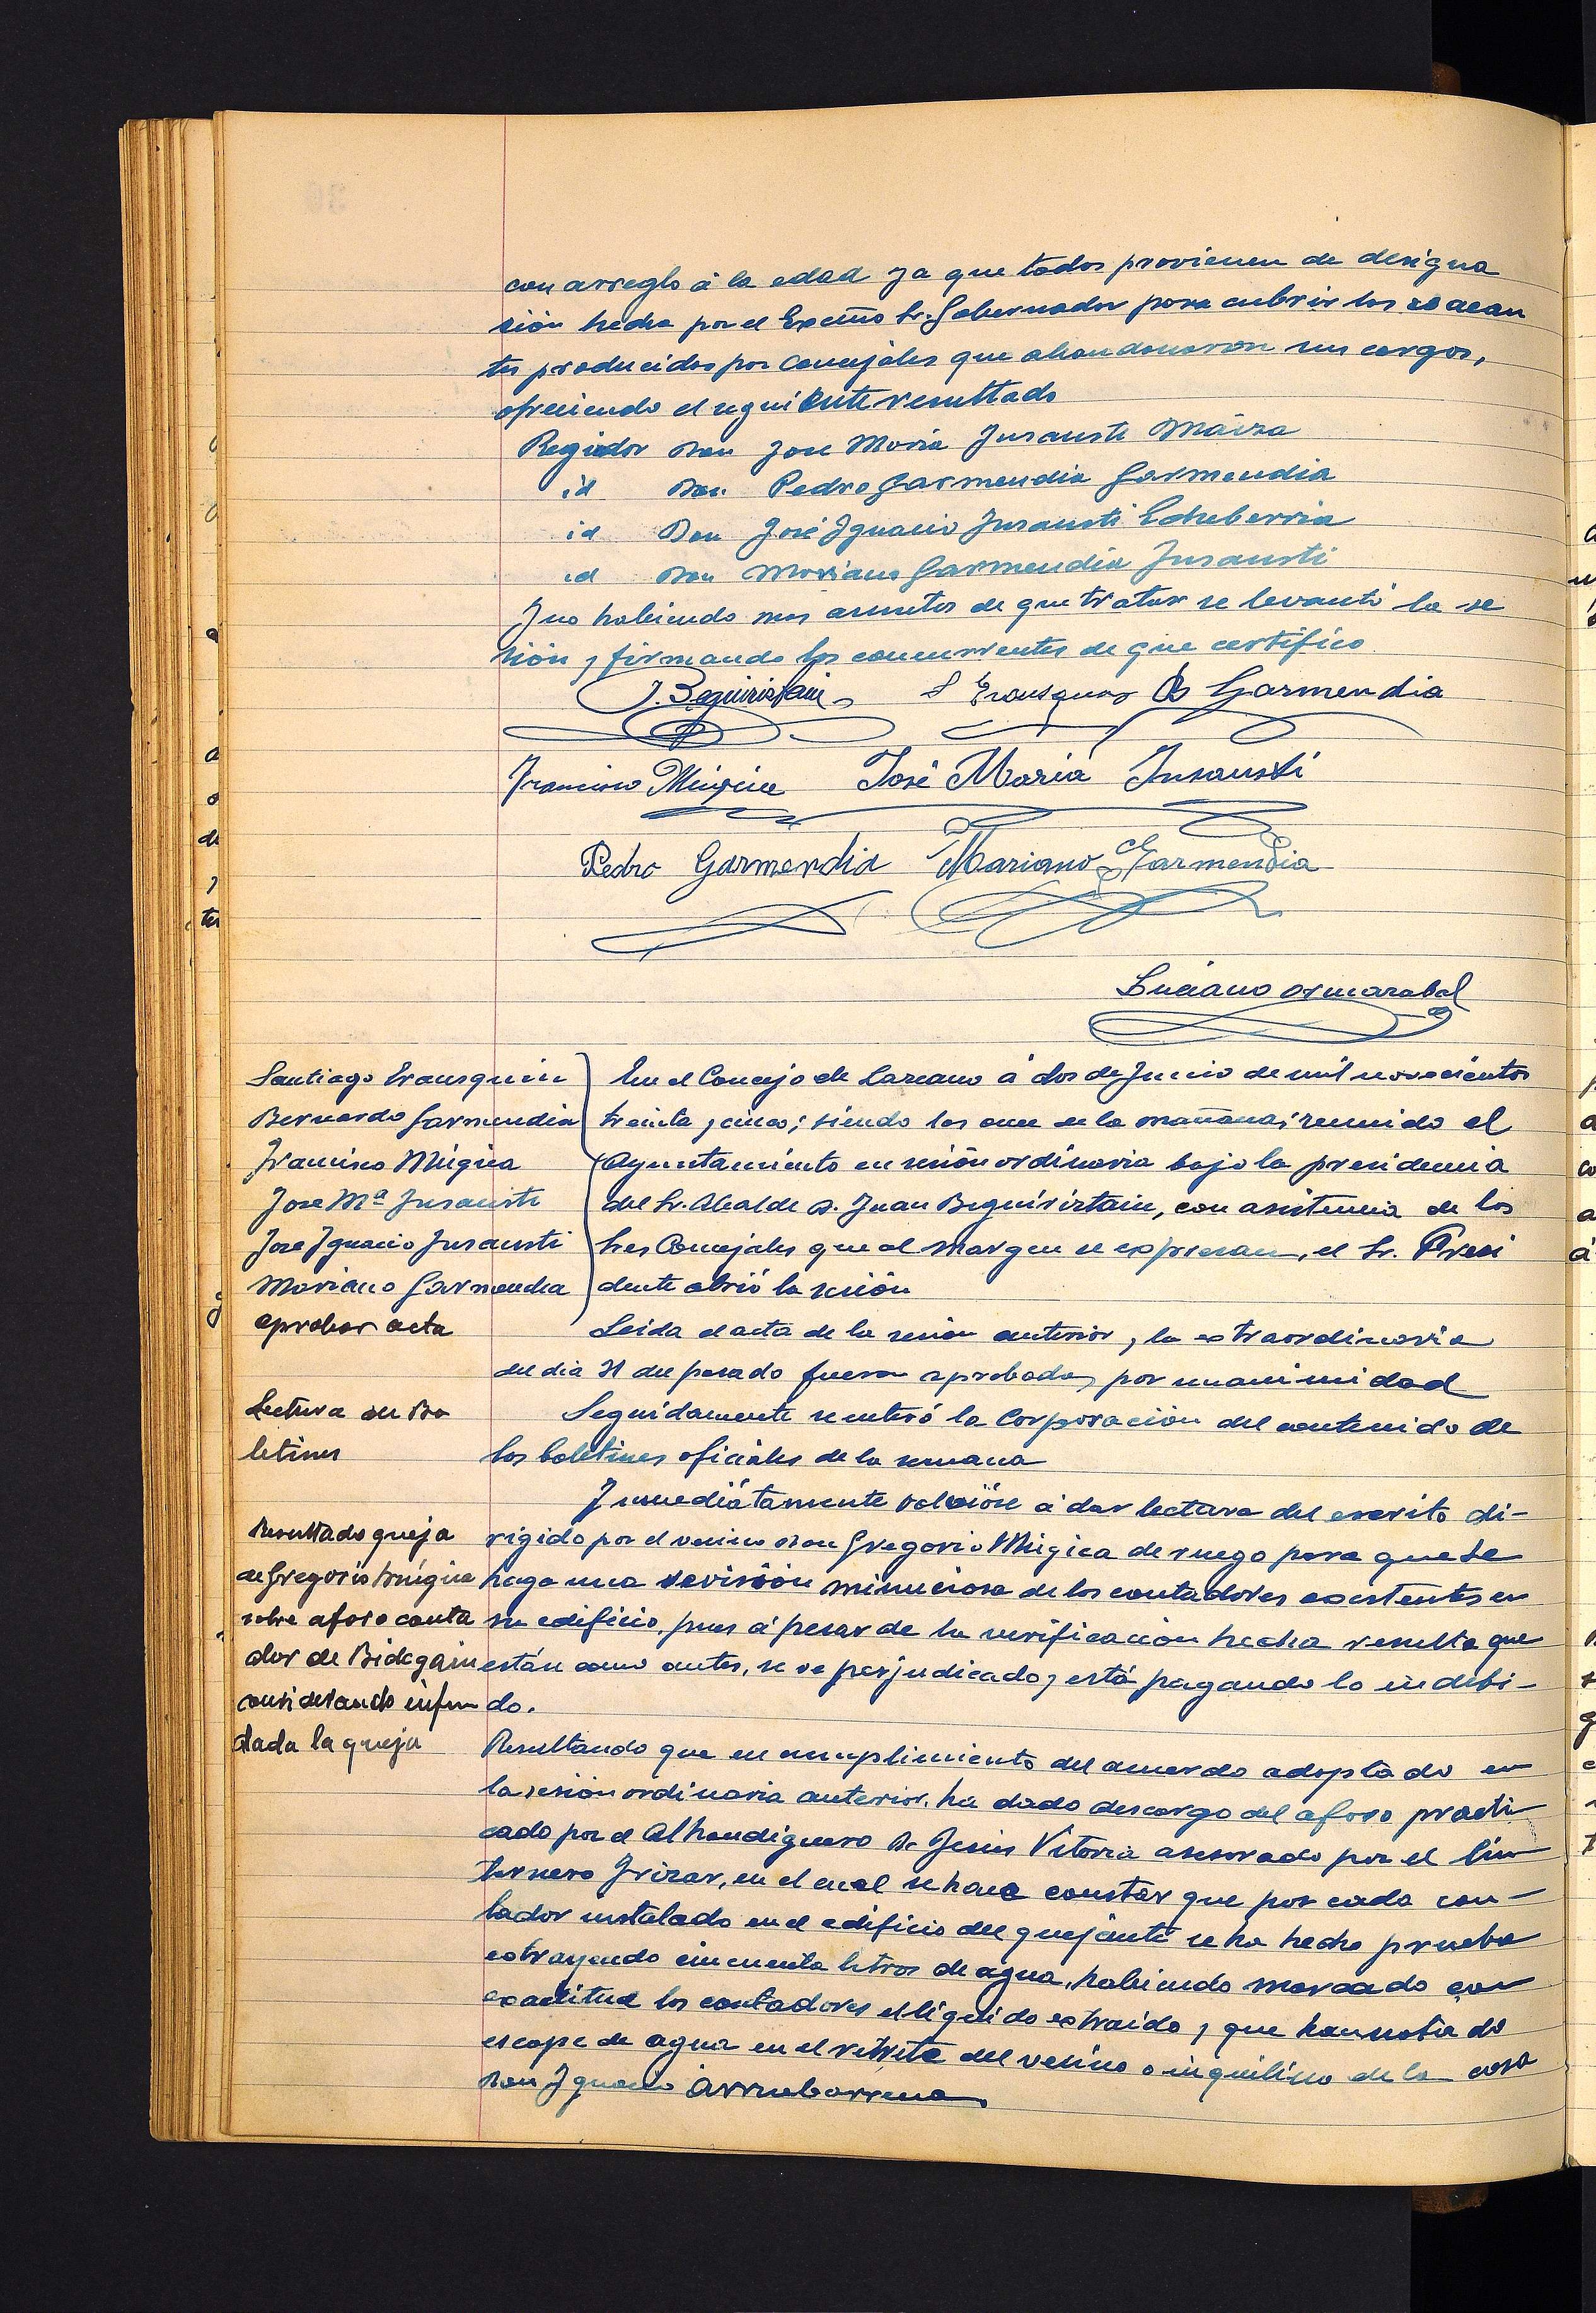 con arreglo á la edad ya que todos provienen de designa
sión hecha por el Excmo Sr. Gobernador para cubrir las vacan
tes producidas por concejales que abandonaron sus cargos,
ofreciendo el siguiente resultado
Regidor Don Jose Maria Insausti Maiza
id Don Pedro Garmendia Garmendia
id Don José Ignacio Insausti Echeberria
id Don Mariano Garmendia Insausti
Y no habiendo mas asuntos de que tratar se levantó la se
sión y firmando los concurrentes de que certifico
J. Beguiristain S Irausquin B Garmendia
Francisco Múgica José Maria Insausti
Pedro Garmendia Mariano Garmendia
Luciano Ormazabal
Santiago Irausquin
Bernardo Garmendia
Francisco Múgica
Jose Mª Insausti
Jose Ignacio Insausti
Mariano Garmendia
En el Concejo de Lazcano á dos de Junio de mil novecientos
treinta y cinco; siendo las once de la mañana; reunido el
Ayuntamiento en sesión ordinaria bajo la presidencia
del Sr. Alcalde D. Juan Beguiristain, con asistencia de los
Sres Concejales que al margen se expresan, el Sr. Presi
dente abrió la sesión
aprobar acta
Leida el acta de la sesion anterior y la extraordinaria
del dia 31 del pasado fueron aprobadas por unanimidad
Lectura de Bo
letines
Seguidamente se enteró la Corporación del contenido de
los boletines oficiales de la semana
Resultado queja
de Gregorio Múgica
sobre aforo conta
dor de Bidegain
considerando infun
dada la queja
Inmediátamente volvióse á dar lectura del escrito di-
rigido por el vecino Don Gregorio Múgica de ruego para que se
haga una revisión minuciosa de los contadores existentes en
su edificio, pues á pesar de la verificación hecha resulta que
están como antes, se ve perjudicado y está pagando lo indebi-
do.
Resultando que en cumplimiento del acuerdo adoptado en
la sesión ordinaria anterior, ha dado descargo del aforo practi
cado por el Alhondiguero D. Jesús Vitoria asesorado por el
Irizar, en el cual se hace constar que por cada con-
tador instalado en el edificio del quejante se ha hecho prueba
extrayendo cincuenta litros de agua, habiendo marcado con
exactitud los contadores el líquido extraido y que han notado
escape de agua en el retrete del vecino o inquilino de la casa
Don Ignacio Arruebarrena